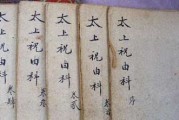 太上祝由科 序
太上祝由科
太上祝由科 卷貳
太上祝由科 卷
太上祝由科 卷肆